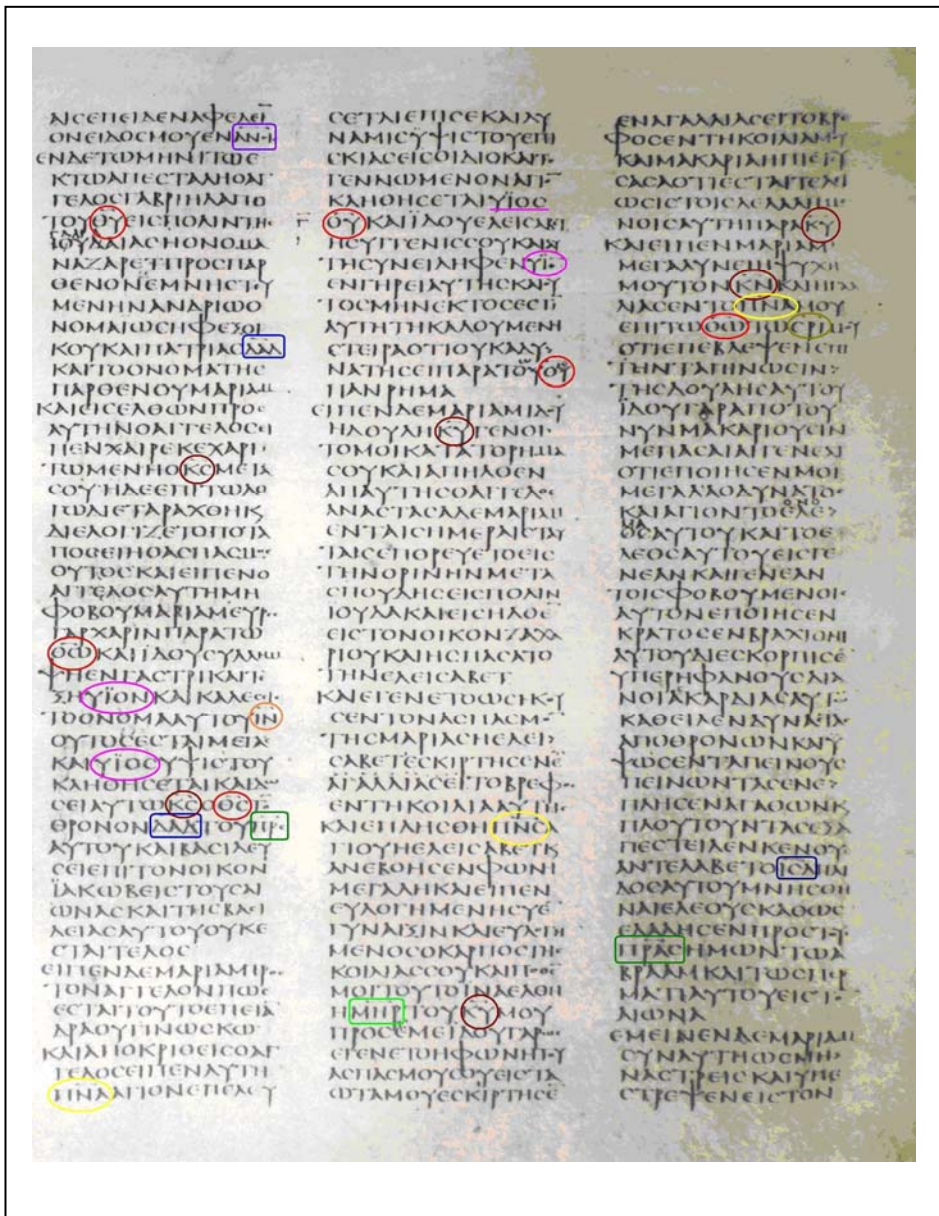 ΑΙCΕΠΕΙΔΕΝΑΦΕΛΕΙ̅
ΟΝΕΙΔΟCΜΟΥΕΝΑΝ̅Ι
ΕΝΔΕΤΩΜΗΝΙΤΩΕ
ΚΤΩΑΠΕCΤΑΛΗΟΑΓ
ΓΕΛΟCΓΑΒΡΙΗΛΑΠΟ
ΤΟΥΘ̅Υ̅ΕΙCΠΟΛΙΝΤΗC
ΙΟΥΔΑΙΑCΗΟΝΟΜΑ
ΝΑΖΑΡΕΤ·ΠΡΟCΠΑΡ
ΘΕΝΟΝΕΜΝΗCΤΟΥ
ΜΕΝΗΝΑΝΔΡΙΩΟ
ΝΟΜΑΙΩCΗΦΕΞΟΙ
ΚΟΥΚΑΙΠΑΤΡΙΑCΔΑ̅Δ̅
ΚΑΙΤΟΟΝΟΜΑΤΗC
ΠΑΡΘΕΝΟΥΜΑΡΙΑΜ
ΚΑΙΕΙCΕΛΘΩΝΠΡΟC
ΑΥΤΗΝΟΑΓΓΕΛΟCΕΙ
ΠΕΝΧΑΙΡΕΚΕΧΑΡΙ
ΤΩΜΕΝΗΟΚ̅C̅ΜΕΤΑ
CΟΥΗΔΕΕΠΙΤΩΛΟ
ΓΩΔΙΕΤΑΡΑΧΘΗΚ
ΔΙΕΛΟΓΙΖΕΤΟΠΟΤΑ
ΠΟCΕΙΗΟΑCΠΑCΜΟC
ΟΥΤΟCΚΑΙΕΙΠΕΝΟ
ΑΓΓΕΛΟCΑΥΤΗΜΗ
ΦΟΒΟΥΜΑΡΙΑΜΕΥΡΕC
ΓΑΡΧΑΡΙΝΠΑΡΑΤΩ
Θ̅Ω̅ΚΑΙΪΔΟΥCΥΛΛΗΜ
ΨΗΕΝΓΑCΤΡΙΚΑΙΤΕ
ΞΗΥΪΟΝΚΑΙΚΑΛΕCΙC
ΤΟΟΝΟΜΑΑΥΤΟΥΙ̅Ν̅
ΟΥΤΟCΕCΤΑΙΜΕΓΑC
ΚΑΙΥΪΟCΥΨΙCΤΟΥ
ΚΛΗΘΗCΕΤΑΙΚΑΙΔΩ
CΕΙΑΥΤΩΚ̅C̅ΟΘ̅C̅Τ
ΘΡΟΝΟΝΔΑ̅Δ̅ΤΟΥΠ̅Ρ̅C̅
ΑΥΤΟΥΚΑΙΒΑCΙΛΕΥ
CΕΙΕΠΙΤΟΝΟΙΚΟΝ
ΪΑΚΩΒΕΙCΤΟΥCΑΙ
ΩΝΑCΚΑΙΤΗCΒΑCΙ
ΛΕΙΑCΑΥΤΟΥΟΥΚΕ
CΤΑΙΤΕΛΟC
ΕΙΠΕΝΔΕΜΑΡΙΑΜΠΡΟC
ΤΟΝΑΓΓΕΛΟΝΠΩC
ΕCΤΑΙΤΟΥΤΟΕΠΕΙΑ̅
ΔΡΑΟΥΓΙΝΩCΚΩ
ΚΑΙΑΠΟΚΡΙΘΕΙCΟΑΓ
ΓΕΛΟCΕΙΠΕΝΑΥΤΗ
Π̅Ν̅Α̅ΑΓΙΟΝΕΠΕΛΕΥ
CΕΤΑΙΕΠΙCΕΚΑΙΔΥ
ΝΑΜΙCΥΨΙCΤΟΥΕΠΙ
CΚΙΑCΕΙCΟΙΔΙΟΚΑΙΤ
ΓΕΝΝΩΜΕΝΟΝΑΓΙ
ΚΛΗΘΗCΕΤΑΙΥΪΟC
Θ̅Υ̅ΚΑΙΪΔΟΥΕΛΕΙCΑΒΕΤ
ΗCΥΓΓΕΝΙCCΟΥΚΑΙΑΥ
ΤΗCΥΝΕΙΛΗΦΕΝΥΪΟ
ΕΝΓΗΡΕΙΑΥΤΗCΚΑΙΟΥ
ΤΟCΜΗΝΕΚΤΟCΕCΤΙ
ΑΥΤΗΤΗΚΑΛΟΥΜΕΝΗ
CΤΕΙΡΑΟΤΙΟΥΚΑΔΥ
ΝΑΤΗCΕΙΠΑΡΑΤΟΥΘ̅Υ̅
ΠΑΝΡΗΜΑ
ΕΙΠΕΝΔΕΜΑΡΙΑΜΙΔΟΥ
ΗΔΟΥΛΗΚ̅Υ̅ΓΕΝΟΙ
ΤΟΜΟΙΚΑΤΑΤΟΡΗΜΑ
CΟΥΚΑΙΑΠΗΛΘΕΝ
ΑΠΑΥΤΗCΟΑΓΓΕΛΟC
ΑΝΑCΤΑCΑΔΕΜΑΡΙΑΜ
ΕΝΤΑΙCΗΜΕΡΑΙCΤΑΥ
ΤΑΙCΕΠΟΡΕΥΕΤΟΕΙC
ΤΗΝΟΡΙΝΗΝΜΕΤΑ
CΠΟΥΔΗCΕΙCΠΟΛΙΝ
ΙΟΥΔΑΚΑΙΕΙCΗΛΘΕ̅
ΕΙCΤΟΝΟΙΚΟΝΖΑΧΑ
ΡΙΟΥΚΑΙΗCΠΑCΑΤΟ
ΤΗΝΕΛΕΙCΑΒΕΤ
ΚΑΙΕΓΕΝΕΤΟΩCΗΚΟΥ
CΕΝΤΟΝΑCΠΑCΜΟ
ΤΗCΜΑΡΙΑCΗΕΛΕΙ
CΑΒΕΤΕCΚΙΡΤΗCΕΝΕ̅
ΑΓΑΛΛΙΑCΕΙΤΟΒΡΕΦΟC
ΕΝΤΗΚΟΙΛΙΑΑΥΤΗC
ΚΑΙΕΠΛΗCΘΗΠ̅Ν̅C̅Α
ΓΙΟΥΗΕΛΕΙCΑΒΕΤΚ
ΑΝΕΒΟΗCΕΝΦΩΝΙ
ΜΕΓΑΛΗΚΑΙΕΙΠΕΝ
ΕΥΛΟΓΗΜΕΝΗCΥΕ
ΓΥΝΑΙΞΙΝΚΑΙΕΥΛΟΓΗ
ΜΕΝΟCΟΚΑΡΠΟCΤΗC
ΚΟΙΛΙΑCCΟΥΚΑΙΠΟΘΕ
ΜΟΙΤΟΥΤΟΙΝΑΕΛΘΗ
ΗΜ̅Η̅Ρ̅ΤΟΥΚ̅Υ̅ΜΟΥ
ΠΡΟCΕΜΕΙΔΟΥΓΑΡΩC
ΕΓΕΝΕΤΟΗΦΩΝΗΤΟΥ
ΑCΠΑCΜΟΥCΟΥΕΙCΤΑ
ΩΤΑΜΟΥΕCΚΙΡΤΗCΕ̅
ΕΝΑΓΑΛΛΙΑCΕΙΤΟΒΡΕ
ΦΟCΕΝΤΗΚΟΙΛΙΑΜΟΥ
ΚΑΙΜΑΚΑΡΙΑΗΠΙCΤΕΥ
CΑCΑΟΤΙΕCΤΑΙΤΕΛΕΙ
ΩCΙCΤΟΙCΛΕΛΑΛΗΜΕ
ΝΟΙCΑΥΤΗΠΑΡΑΚ̅Υ̅
ΚΑΙΕΙΠΕΝΜΑΡΙΑΜ
ΜΕΓΑΛΥΝΕΙΗΨΥΧΗ
ΜΟΥΤΟΝΚ̅Ν̅ΚΑΙΗΓΑΛ
ΛΙΑCΕΝΤΟΠ̅Ν̅Α̅ΜΟΥ
ΕΠΙΤΩΘ̅Ω̅ΤΩC̅Ρ̅Ι̅ΜΟΥ
ΟΤΙΕΠΕΒΛΕΨΕΝΕΠΙ
ΤΗΝΤΑΠΙΝΩCΙΝ
ΤΗCΔΟΥΛΗCΑΥΤΟΥ
ΪΔΟΥΓΑΡΑΠΟΤΟΥ
ΝΥΝΜΑΚΑΡΙΟΥCΙΝ
ΜΕΠΑCΑΙΑΙΓΕΝΕΑΙ
ΟΤΙΕΠΟΙΗCΕΝΜΟΙ
ΜΕΓΑΛΑΟΔΥΝΑΤΟC
ΚΑΙΑΓΙΟΝΤΟΕΛΕ
ΟCΑΥΤΟΥΚΑΙΤΟΕ
ΛΕΟCΑΥΤΟΥΕΙCΓΕ
ΝΕΑΝΚΑΙΓΕΝΕΑΝ
ΤΟΙCΦΟΒΟΥΜΕΝΟΙC
ΑΥΤΟΝΕΠΟΙΗCΕΝ
ΚΡΑΤΟCΕΝΒΡΑΧΙΟΝΙ
ΑΥΤΟΥΔΙΕCΚΟΡΠΙCΕ̅
ΥΠΕΡΗΦΑΝΟΥCΔΙΑ
ΝΟΙΑΚΑΡΔΙΑCΑΥΤΩ
ΚΑΘΕΙΛΕΝΔΥΝΑCΤΑC
ΑΠΟΘΡΟΝΩΝΚΑΙΥ
ΨΩCΕΝΤΑΠΕΙΝΟΥC
ΠΕΙΝΩΝΤΑCΕΝΕ
ΠΛΗCΕΝΑΓΑΘΩΝΚ
ΠΛΟΥΤΟΥΝΤΑCΕΞΑ
ΠΕCΤΕΙΛΕΝΚΕΝΟΥC
ΑΝΤΕΛΑΒΕΤΟΙ̅C̅Λ̅ΠΑΙ
ΔΟCΑΥΤΟΥΜΝΗCΘΗ
ΝΑΙΕΛΕΟΥCΚΑΘΩC
ΕΛΑΛΗCΕΝΠΡΟCΤΟΥC
Π̅Ρ̅Α̅C̅ΗΜΩΝΤΩΑ
ΒΡΑΑΜΚΑΙΤΩCΠΕΡ
ΜΑΤΙΑΥΤΟΥΕΙCΤΟ
ΑΙΩΝΑ
ΕΜΕΙΝΕΝΔΕΜΑΡΙΑΜ
CΥΝΑΥΤΗΩCΜΗ
ΝΑCΤΡΕΙCΚΑΙΥΠΕ
CΤΡΕΨΕΝΕΙCΤΟΝ